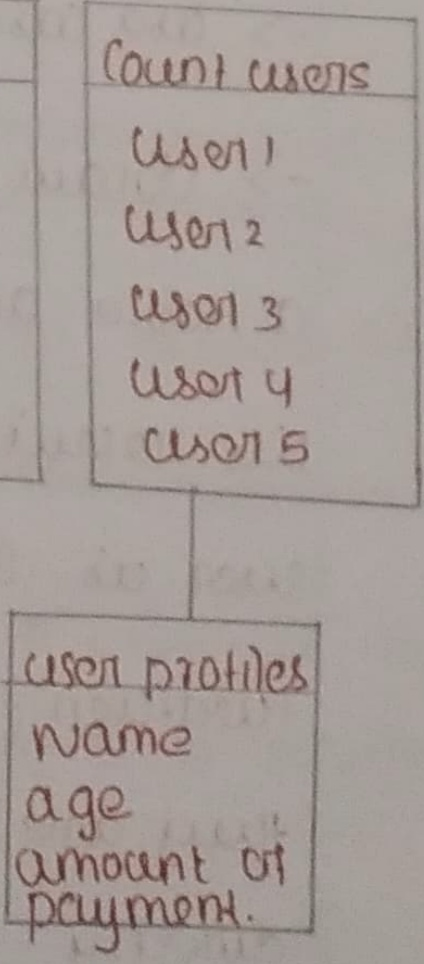 Count users
user 1
user 2
user 3
user 4
user 5
user profiles
Name
age
amount of
payment.